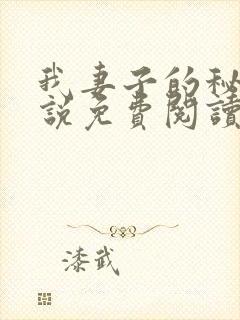 我妻子的秘
說免費閱讀
漆武